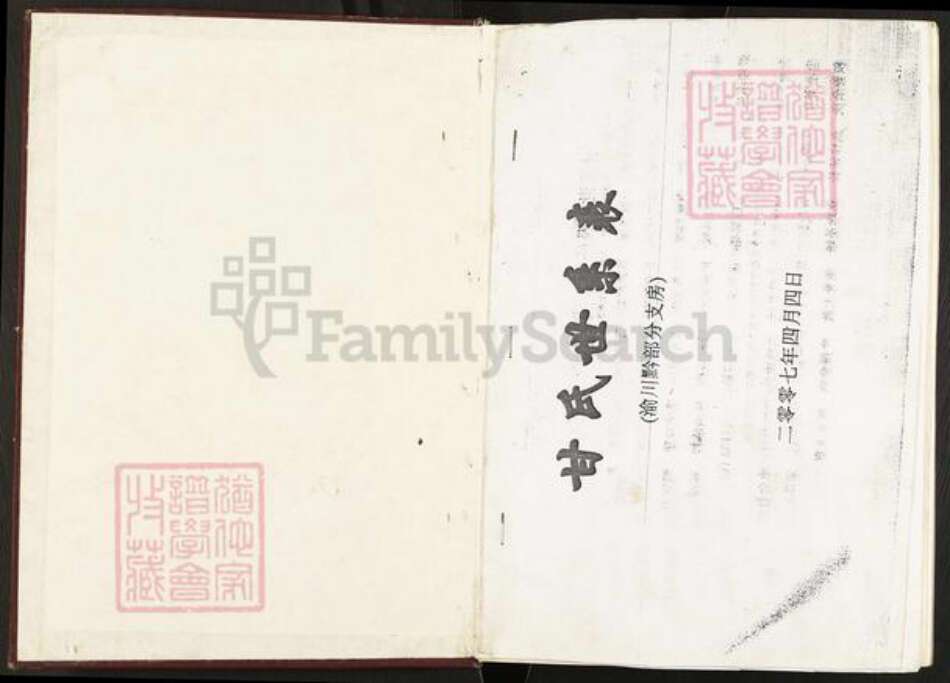 甘氏世系表
(渝川黔部分支房)
二零零七年四月四日
猶他家
譜學會
收藏
猶他家
譜學會
收藏
FamilySearch